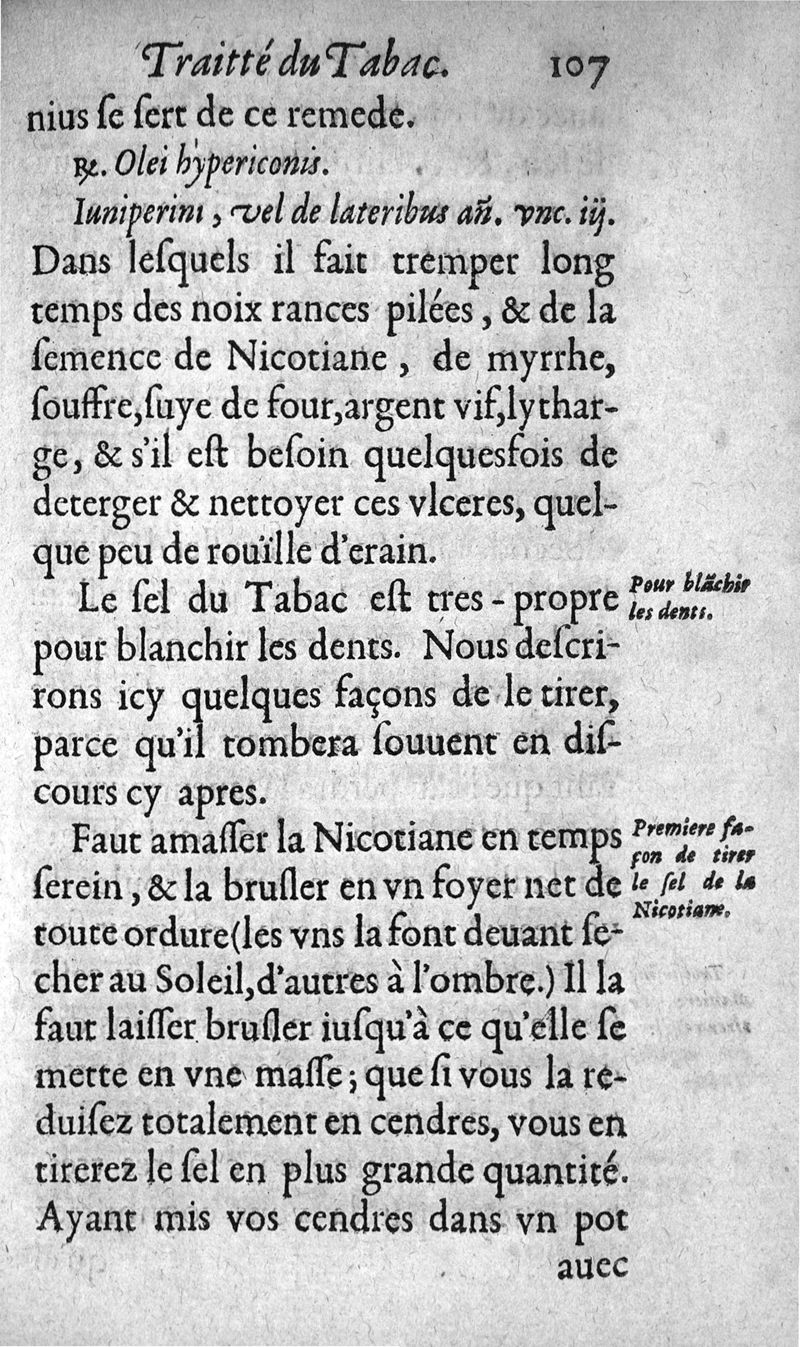 Traitté du Tabac. 107
nius ſe ſert de ce remede.
℞. Olei hypericonis.
Iuniperini, vel de lateribus añ. vnc. iij.
Dans leſquels il fait tremper long
temps des noix rances pilées, & de la
ſemence de Nicotiane, de myrrhe,
ſouffre, ſuye de four, argent vif, lythar-
ge, & s'il eſt beſoin quelquesfois de
deterger & nettoyer ces vlceres, quel-
que peu de rouïlle d'erain.
Le ſel du Tabac eſt tres-propre
Pour blãchir
les dents.
pour blanchir les dents. Nous deſcri-
rons icy quelques façons de le tirer,
parce qu'il tombera ſouuent en diſ-
cours cy apres.
Faut amaſſer la Nicotiane en temps
Premiere fa-
çon de tirer
le ſel de la
Nicotiane.
ſerein, & la bruſler en vn foyer net de
toute ordure (les vns la font deuant ſe-
cher au Soleil, d'autres à l'ombre.) Il la
faut laiſſer bruſler iuſqu'à ce qu'elle ſe
mette en vne maſſe; que ſi vous la re-
duiſez totalement en cendres, vous en
tirerez le ſel en plus grande quantité.
Ayant mis vos cendres dans vn pot
auec